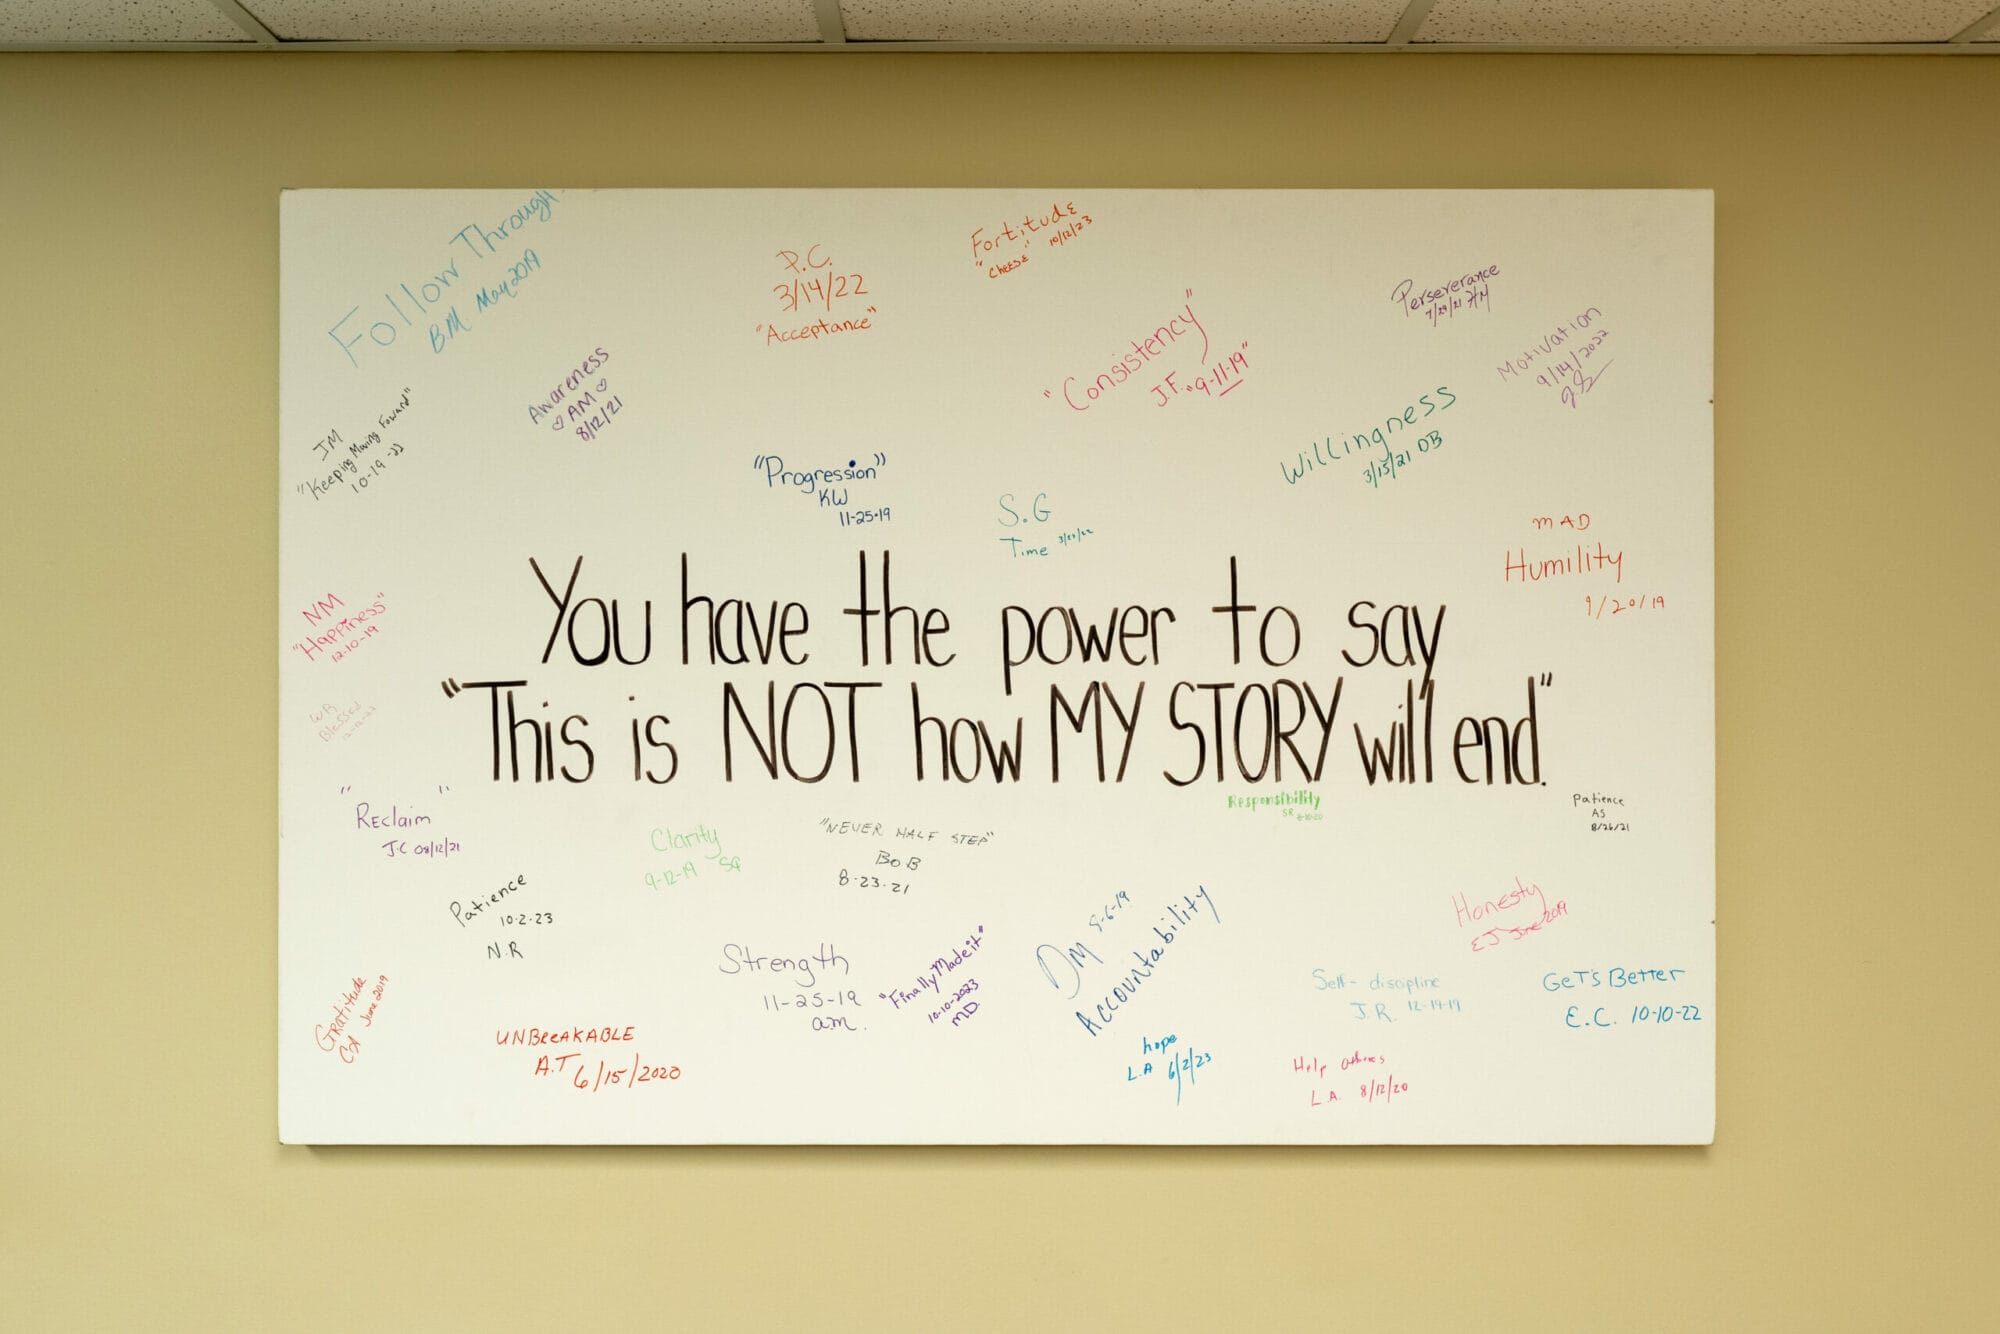 Follow Through
B.M. May 2019
P.C.
3/14/22
"Acceptance"
Fortitude
"Cheese" 10/12/23
Perseverance
7/29/21 HM
Motivation
9/14/2022
"Consistency"
J.F. "9-11-19"
Awareness
♡ AM ♡
8/12/21
JM
"Keeping Moving Foward"
10-19-22
Willingness
3/15/21 DB
"Progression"
KW
11-25-19
S.G
Time
MAD
Humility
9/20/19
You have the power to say
"This is NOT how MY STORY will end."
NM
"Happiness"
12-10-19
WR
Blessed
12-12-22
"Reclaim"
J.C 08/12/21
Clarity
9-12-19 SG
"NEVER HALF STEP"
BOB
8-23-21
Responsibility
SR 6-10-20
Patience
AS
8/26/21
Patience
10-2-23
N.R
Strength
11-25-19
am.
"Finally Made it"
10-10-2023
MD.
DM
Accountability
Honesty
EJ June 2019
Self-discipline
J.R. 12-19-19
GeT's Better
E.C. 10-10-22
Gratitude
CA June 2019
UNBReAKABLE
A.T 6/15/2020
hope
L.A 6/2/23
Help others
L.A. 8/12/20